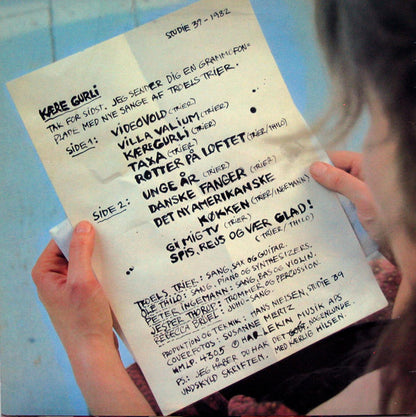 STUDIE 39 - 1982
KÆRE GURLI
TAK FOR SIDST. JEG SENDER DIG EN GRAMMOFON=
PLADE MED NYE SANGE AF TROELS TRIER.
SIDE 1:
VIDEOVOLD (TRIER)
VILLA VALIUM (TRIER)
KÆREGURLI (TRIER)
TAXA (TRIER)
ROTTER PÅ LOFTET (TRIER/THILO)
SIDE 2:
UNGE ÅR (TRIER)
DANSKE FANGER (TRIER)
DET NY AMERIKANSKE
KØKKEN (TRIER/INGEMANN)
GI MIG TV (TRIER)
SPIS, REJS OG VÆR GLAD!
(TRIER/THILO)
TROELS TRIER: SANG, SAX OG GUITAR.
OLE THILO: SANG, PIANO OG SYNTHESIZERS.
PETER INGEMANN: SANG, BAS OG VIOLIN.
JESPER THORUP: TROMMER OG PERCUSSION.
REBECCA BRÜEL: SANG.
PRODUKTION OG TEKNIK: HANS NIELSEN, STUDIE 39
COVERFOTOS: SUSANNE MERTZ
HMLP 4305 © HARLEKIN MUSIK APS
PS: JEG HÅBER DU HAR DET GODT, NOGENLUNDE.
UNDSKYLD SKRIFTEN. MED KÆRLIG HILSEN.